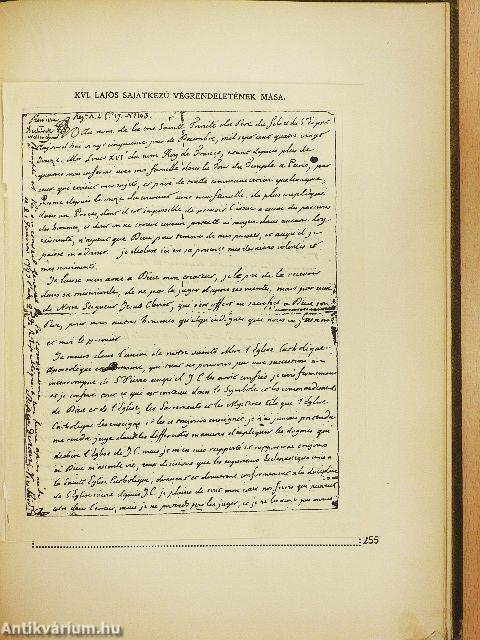 XVI. LAJOS SAJÁTKEZŰ VÉGRENDELETÉNEK MÁSA.
Au nom de la tres Sainte Trinité du Pere du fils et du St Esprit
Aujourd'hui vingt cinquieme jour de Decembre, mil sept cent quatre vingt
douze. Moi Louis XVI du nom Roy de France, etant depuis plus de
quatres mois enfermé avec ma famille dans la Tour du Temple a Paris, par
ceux qui etoient mes sujets, et privé de toute communication quelconque,
meme depuis le onze du courant avec ma famille. de plus impliqué
dans un Procès, dont il est impossible de prevoir l'issue a cause des passions
des hommes, et dont on ne trouve aucun pretexte ni moyen dans aucune Loy
existante, n'ayant que Dieu pour temoin de mes pensées, et auquel je
puisse m'adresser. je declare ici en sa presence mes dernieres volontés et
mes sentiments.
Je laisse mon ame a Dieu mon createur, je le prie de la recevoir
dans sa misericorde, de ne pas la juger d'apres ses merites, mais par ceux
de Notre Seigneur Jesus Christ, qui s'est offert en sacrifice a Dieu son
Pere, pour nous autres hommes quelqu'indignes que nous en fussions
et moi le premier.
Je meurs dans l'union de notre sainte Mere l'Eglise Catholique
Apostolique et Romaine, qui tient ses pouvoirs par une succession non
interrompue de St Pierre auquel J.C. les avoit confiés, je crois fermement
et je confesse tout ce qui est contenu dans le Symbole et les commandements
de Dieu et de l'Eglise, les Sacrements et les Mysteres tels que l'Eglise
Catholique les enseigne et les a toujours enseignés, je n'ai jamais pretendu
me rendre juge dans les differentes manieres d'expliquer les dogmes qui
dechire l'Eglise de J.C. mais je m'en suis rapporté et rapporterai toujours
si Dieu m'accorde vie, aux decisions que les superieurs Ecclesiastiques unis a
la Sainte Eglise Catholique, donnent et donneront conformement a la discipline
de l'Eglise suivie depuis J.C. je plains de tout mon cœur nos freres qui peuvent
etre dans l'erreur, mais je ne pretends pas les juger, et je ne les aime pas moins
255
Antikvárium.hu